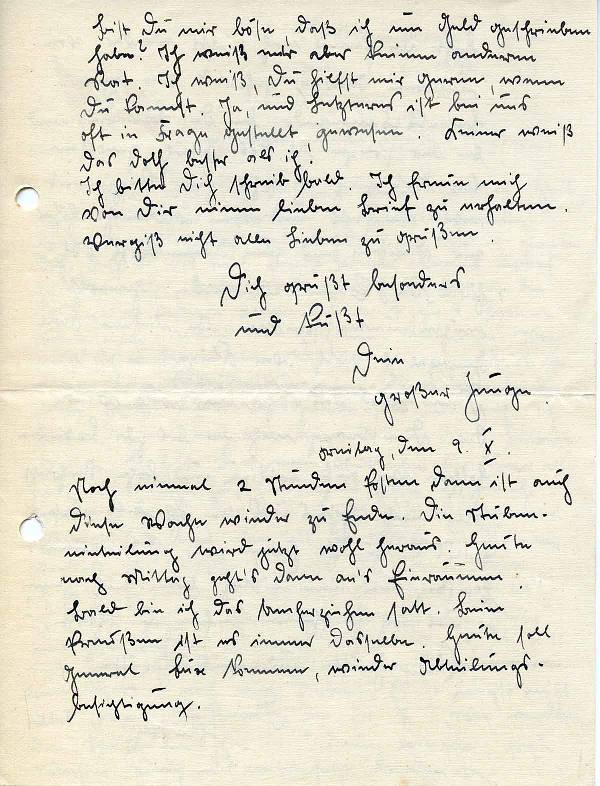 Bist Du mir böse, daß ich um Geld geschrieben
habe? Ich weiß mir aber keinen anderen
Rat. Ich weiß, Du hilfst mir gerne, wenn
Du kannst. Ja, und Letzteres ist bei uns
oft in Frage gestellt gewesen. Keiner weiß
das doch besser als ich!
Ich bitte Dich schreib bald. Ich freue mich
von Dir einen lieben Brief zu erhalten.
Vergiß nicht alle Lieben zu grüßen.
Dich grüßt besonders
und küßt
Dein
großer Junge.
Freitag, den 9. X.
Noch einmal 2 Stunden Posten dann ist auch
diese Wache wieder zu Ende. Die Stuben-
einteilung wird jetzt wohl heraus. Heute
nach Mittag geht's dann an's Einräumen.
Bald bin ich das umherziehen satt. Beim
Preußen ist es immer dasselbe. Heute soll
General kommen, wieder Abteilungs-
besichtigung.